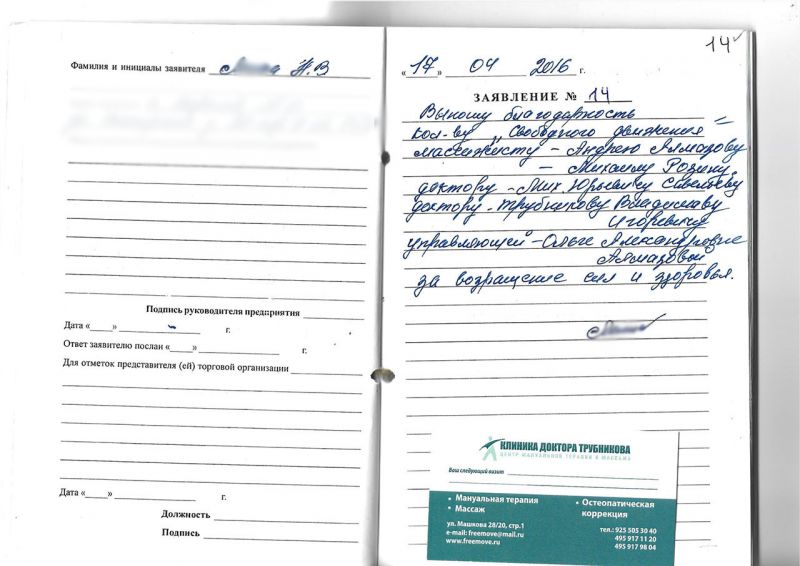 Фамилия и инициалы заявителя Н.В
Подпись руководителя предприятия
Дата «___» г.
Ответ заявителю послан «___» г.
Для отметок представителя (ей) торговой организации
Дата «___» г.
Должность
Подпись
14
«17» 04 2016 г.
ЗАЯВЛЕНИЕ № 14
Выношу благодарность
кол-ву „Свободного движения"
массажисту - Андрею Алмазову
— Михаилу Розину,
доктору - Мих. Юрьевичу
доктору - Трубникову Владиславу
Игоревичу
управляющей - Ольге Александровне
Алмазовой
за возращение сил и здоровья.
КЛИНИКА ДОКТОРА ТРУБНИКОВА
ЦЕНТР МАНУАЛЬНОЙ ТЕРАПИИ И МАССАЖА
Ваш следующий визит
• Мануальная терапия
• Массаж
• Остеопатическая
коррекция
ул. Машкова 28/20, стр.1
e-mail: freemove@mail.ru
www.freemove.ru
тел.: 925 505 30 40
495 917 11 20
495 917 98 04